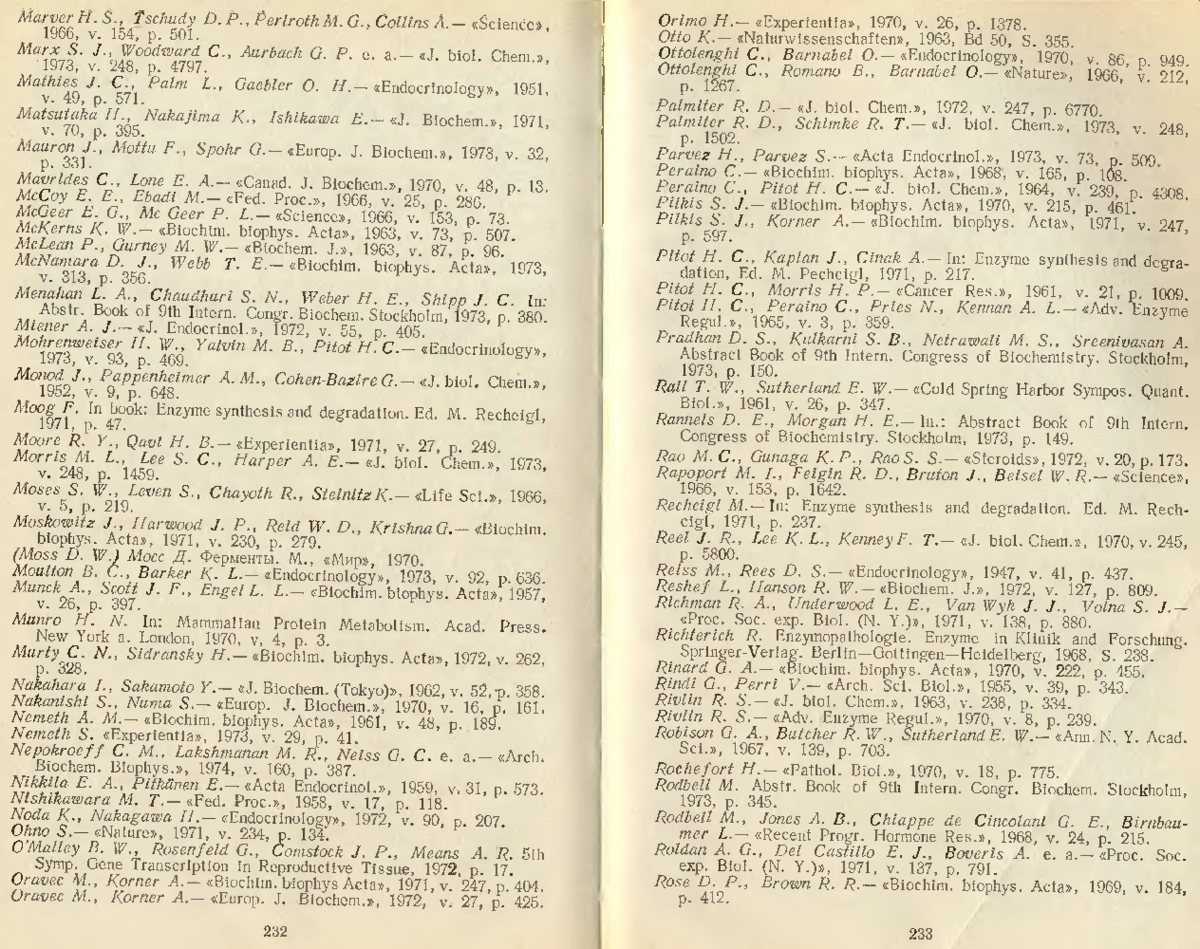 Marver H. S., Tschudy D. P., Perlroth M. G., Collins A.— «Science»,
1966, v. 154, p. 501.
Marx S. J., Woodward C., Aurbach G. P. e. a.— «J. biol. Chem.»,
1973, v. 248, p. 4797.
Mathies J. C., Palm L., Gaebler O. H.— «Endocrinology», 1951,
v. 49, p. 571.
Matsutaka H., Nakajima K., Ishikawa E.— «J. Biochem.», 1971,
v. 70, p. 395.
Mauron J., Mottu F., Spohr G.— «Europ. J. Biochem.», 1973, v. 32,
p. 331.
Mavrides C., Lone E. A.— «Canad. J. Biochem.», 1970, v. 48, p. 13.
McCoy E. E., Ebadi M.— «Fed. Proc.», 1966, v. 25, p. 286.
McGeer E. G., Mc Geer P. L.— «Science», 1966, v. 153, p. 73.
McKerns K. W.— «Biochim. biophys. Acta», 1963, v. 73, p. 507.
McLean P., Gurney M. W.— «Biochem. J.», 1963, v. 87, p. 96.
McNamara D. J., Webb T. E.— «Biochim. biophys. Acta», 1973,
v. 313, p. 356.
Menahan L. A., Chaudhuri S. N., Weber H. E., Shipp J. C. In:
Abstr. Book of 9th Intern. Congr. Biochem. Stockholm, 1973, p. 380.
Miener A. J.— «J. Endocrinol.», 1972, v. 55, p. 405.
Mohrenweiser H. W., Yalvin M. B., Pitot H. C.— «Endocrinology»,
1973, v. 93, p. 469.
Monod J., Pappenheimer A. M., Cohen-Bazire G.— «J. biol. Chem.»,
1952, v. 9, p. 648.
Moog F. In book: Enzyme synthesis and degradation. Ed. M. Rechcigl,
1971, p. 47.
Moore R. Y., Qavi H. B.— «Experientia», 1971, v. 27, p. 249.
Morris M. L., Lee S. C., Harper A. E.— «J. biol. Chem.», 1973,
v. 248, p. 1459.
Moses S. W., Leven S., Chayoth R., Steinitz K.— «Life Sci.», 1966,
v. 5, p. 219.
Moskowitz J., Harwood J. P., Reid W. D., Krishna G.— «Biochim.
biophys. Acta», 1971, v. 230, p. 279.
(Moss D. W.) Мосс Д. Ферменты. М., «Мир», 1970.
Moulton B. C., Barker K. L.— «Endocrinology», 1973, v. 92, p. 636.
Munck A., Scott J. F., Engel L. L.— «Biochim. biophys. Acta», 1957,
v. 26, p. 397.
Munro H. N. In: Mammalian Protein Metabolism. Acad. Press.
New York a. London, 1970, v, 4, p. 3.
Murty C. N., Sidransky H.— «Biochim. biophys. Acta», 1972, v. 262,
p. 328.
Nakahara I., Sakamoto Y.— «J. Biochem. (Tokyo)», 1962, v. 52, p. 358.
Nakanishi S., Numa S.— «Europ. J. Biochem.», 1970, v. 16, p. 161.
Nemeth A. M.— «Biochim. biophys. Acta», 1961, v. 48, p. 189.
Nemeth S. «Experientia», 1973, v. 29, p. 41.
Nepokroeff C. M., Lakshmanan M. R., Neiss G. C. e. a.— «Arch.
Biochem. Biophys.», 1974, v. 160, p. 387.
Nikkila E. A., Pitkänen E.— «Acta Endocrinol.», 1959, v. 31, p. 573.
Nishikawara M. T.— «Fed. Proc.», 1958, v. 17, p. 118.
Noda K., Nakagawa H.— «Endocrinology», 1972, v. 90, p. 207.
Ohno S.— «Nature», 1971, v. 234, p. 134.
O'Malley B. W., Rosenfeld G., Comstock J. P., Means A. R. 5th
Symp. Gene Transcription in Reproductive Tissue, 1972, p. 17.
Oravec M., Korner A.— «Biochim. biophys Acta», 1971, v. 247, p. 404.
Oravec M., Korner A.— «Europ. J. Biochem.», 1972, v. 27, p. 425.
232
Orimo H.— «Experientia», 1970, v. 26, p. 1378.
Otto K.— «Naturwissenschaften», 1963, Bd 50, S. 355.
Ottolenghi C., Barnabei O.— «Endocrinology», 1970, v. 86, p. 949.
Ottolenghi C., Romano B., Barnabei O.— «Nature», 1966, v. 212,
p. 1267.
Palmiter R. D.— «J. biol. Chem.», 1972, v. 247, p. 6770.
Palmiter R. D., Schimke R. T.— «J. biol. Chem.», 1973, v. 248,
p. 1502.
Parvez H., Parvez S.— «Acta Endocrinol.», 1973, v. 73, p. 509.
Peraino C.— «Biochim. biophys. Acta», 1968, v. 165, p. 108.
Peraino C., Pitot H. C.— «J. biol. Chem.», 1964, v. 239, p. 4308.
Pilkis S. J.— «Biochim. biophys. Acta», 1970, v. 215, p. 461.
Pilkis S. J., Korner A.— «Biochim. biophys. Acta», 1971, v. 247,
p. 597.
Pitot H. C., Kaplan J., Cinak A.— In: Enzyme synthesis and degra-
dation, Ed. M. Pechcigl, 1971, p. 217.
Pitot H. C., Morris H. P.— «Cancer Res.», 1961, v. 21, p. 1009.
Pitot H. C., Peraino C., Pries N., Kennan A. L.— «Adv. Enzyme
Regul.», 1965, v. 3, p. 359.
Pradhan D. S., Kulkarni S. B., Netrawali M. S., Sreenivasan A.
Abstract Book of 9th Intern. Congress of Biochemistry. Stockholm,
1973, p. 150.
Rall T. W., Sutherland E. W.— «Cold Spring Harbor Sympos. Quant.
Biol.», 1961, v. 26, p. 347.
Rannels D. E., Morgan H. E.— In.: Abstract Book of 9th Intern.
Congress of Biochemistry. Stockholm, 1973, p. 149.
Rao M. C., Gunaga K. P., Rao S. S.— «Steroids», 1972, v. 20, p. 173.
Rapoport M. I., Feigin R. D., Bruton J., Beisel W. R.— «Science»,
1966, v. 153, p. 1642.
Rechcigl M.— In: Enzyme synthesis and degradation. Ed. M. Rech-
cigl, 1971, p. 237.
Reel J. R., Lee K. L., Kenney F. T.— «J. biol. Chem.», 1970, v. 245,
p. 5800.
Reiss M., Rees D. S.— «Endocrinology», 1947, v. 41, p. 437.
Reshef L., Hanson R. W.— «Biochem. J.», 1972, v. 127, p. 809.
Richman R. A., Underwood L. E., Van Wyk J. J., Voina S. J.—
«Proc. Soc. exp. Biol. (N. Y.)», 1971, v. 138, p. 880.
Richterich R. Enzymopathologie. Enzyme in Klinik and Forschung.
Springer-Verlag. Berlin—Gottingen—Heidelberg, 1968, S. 238.
Rinard G. A.— «Biochim. biophys. Acta», 1970, v. 222, p. 455.
Rindi G., Perri V.— «Arch. Sci. Biol.», 1955, v. 39, p. 343.
Rivlin R. S.— «J. biol. Chem», 1963, v. 238, p. 334.
Rivlin R. S.— «Adv. Enzyme Regul.», 1970, v. 8, p. 239.
Robison G. A., Butcher R. W., Sutherland E. W.— «Ann. N. Y. Acad.
Sci.», 1967, v. 139, p. 703.
Rochefort H.— «Pathol. Biol.», 1970, v. 18, p. 775.
Rodbell M. Abstr. Book of 9th Intern. Congr. Biochem. Stockholm,
1973, p. 345.
Rodbell M., Jones A. B., Chiappe de Cincolant G. E., Birnbau-
mer L.— «Recent Progr. Hormone Res.», 1968, v. 24, p. 215.
Roldan A. G., Del Castillo E. J., Boveris A. e. a.— «Proc. Soc.
exp. Biol. (N. Y.)», 1971, v. 137, p. 791.
Rose D. P., Brown R. R.— «Biochim. biophys. Acta», 1969, v. 184,
p. 412.
233